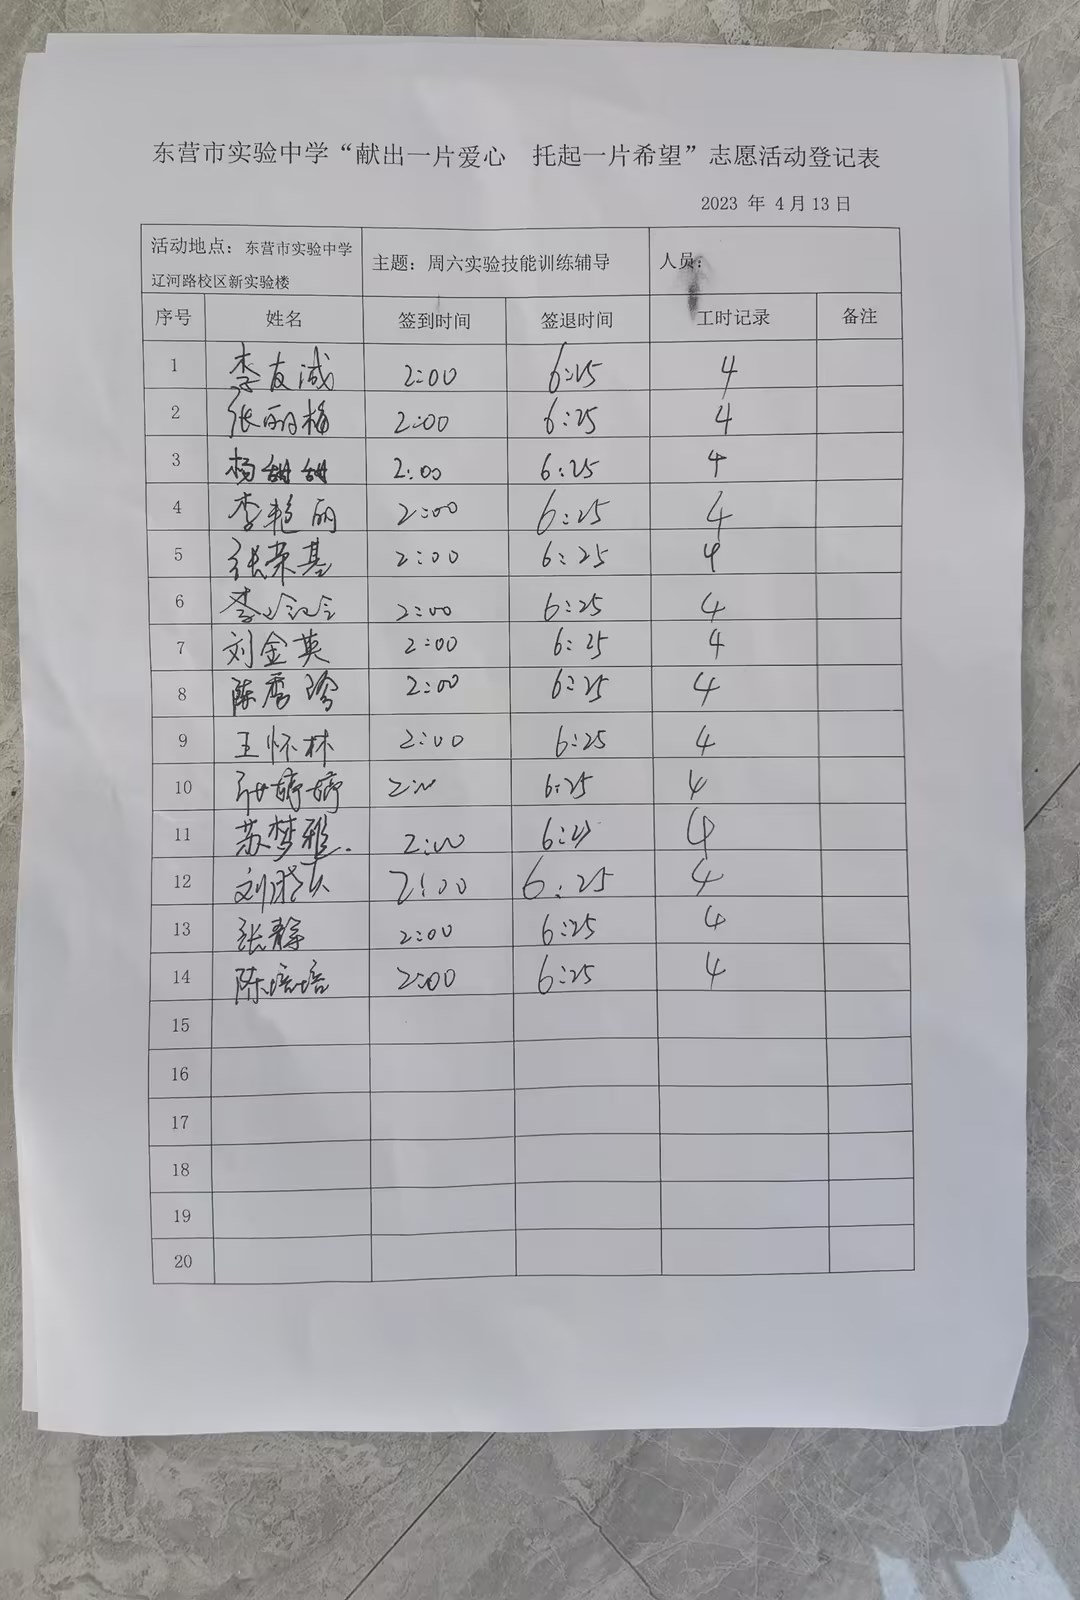 东营市实验中学“献出一片爱心 托起一片希望”志愿活动登记表
2023 年 4月13日
活动地点：东营市实验中学
辽河路校区新实验楼
主题：周六实验技能训练辅导
人员：
序号 姓名 签到时间 签退时间 工时记录 备注
1 李友诚 2:00 6:25 4
2 张丽梅 2:00 6:25 4
3 杨甜甜 2:00 6:25 4
4 李艳丽 2:00 6:25 4
5 张荣基 2:00 6:25 4
6 李 2:00 6:25 4
7 刘金英 2:00 6:25 4
8 陈秀珍 2:00 6:25 4
9 王怀林 2:00 6:25 4
10 张婷婷 2:00 6:25 4
11 苏梦雅. 2:00 6:25 4
12 刘 2:00 6:25 4
13 张静 2:00 6:25 4
14 陈培培 2:00 6:25 4
15
16
17
18
19
20